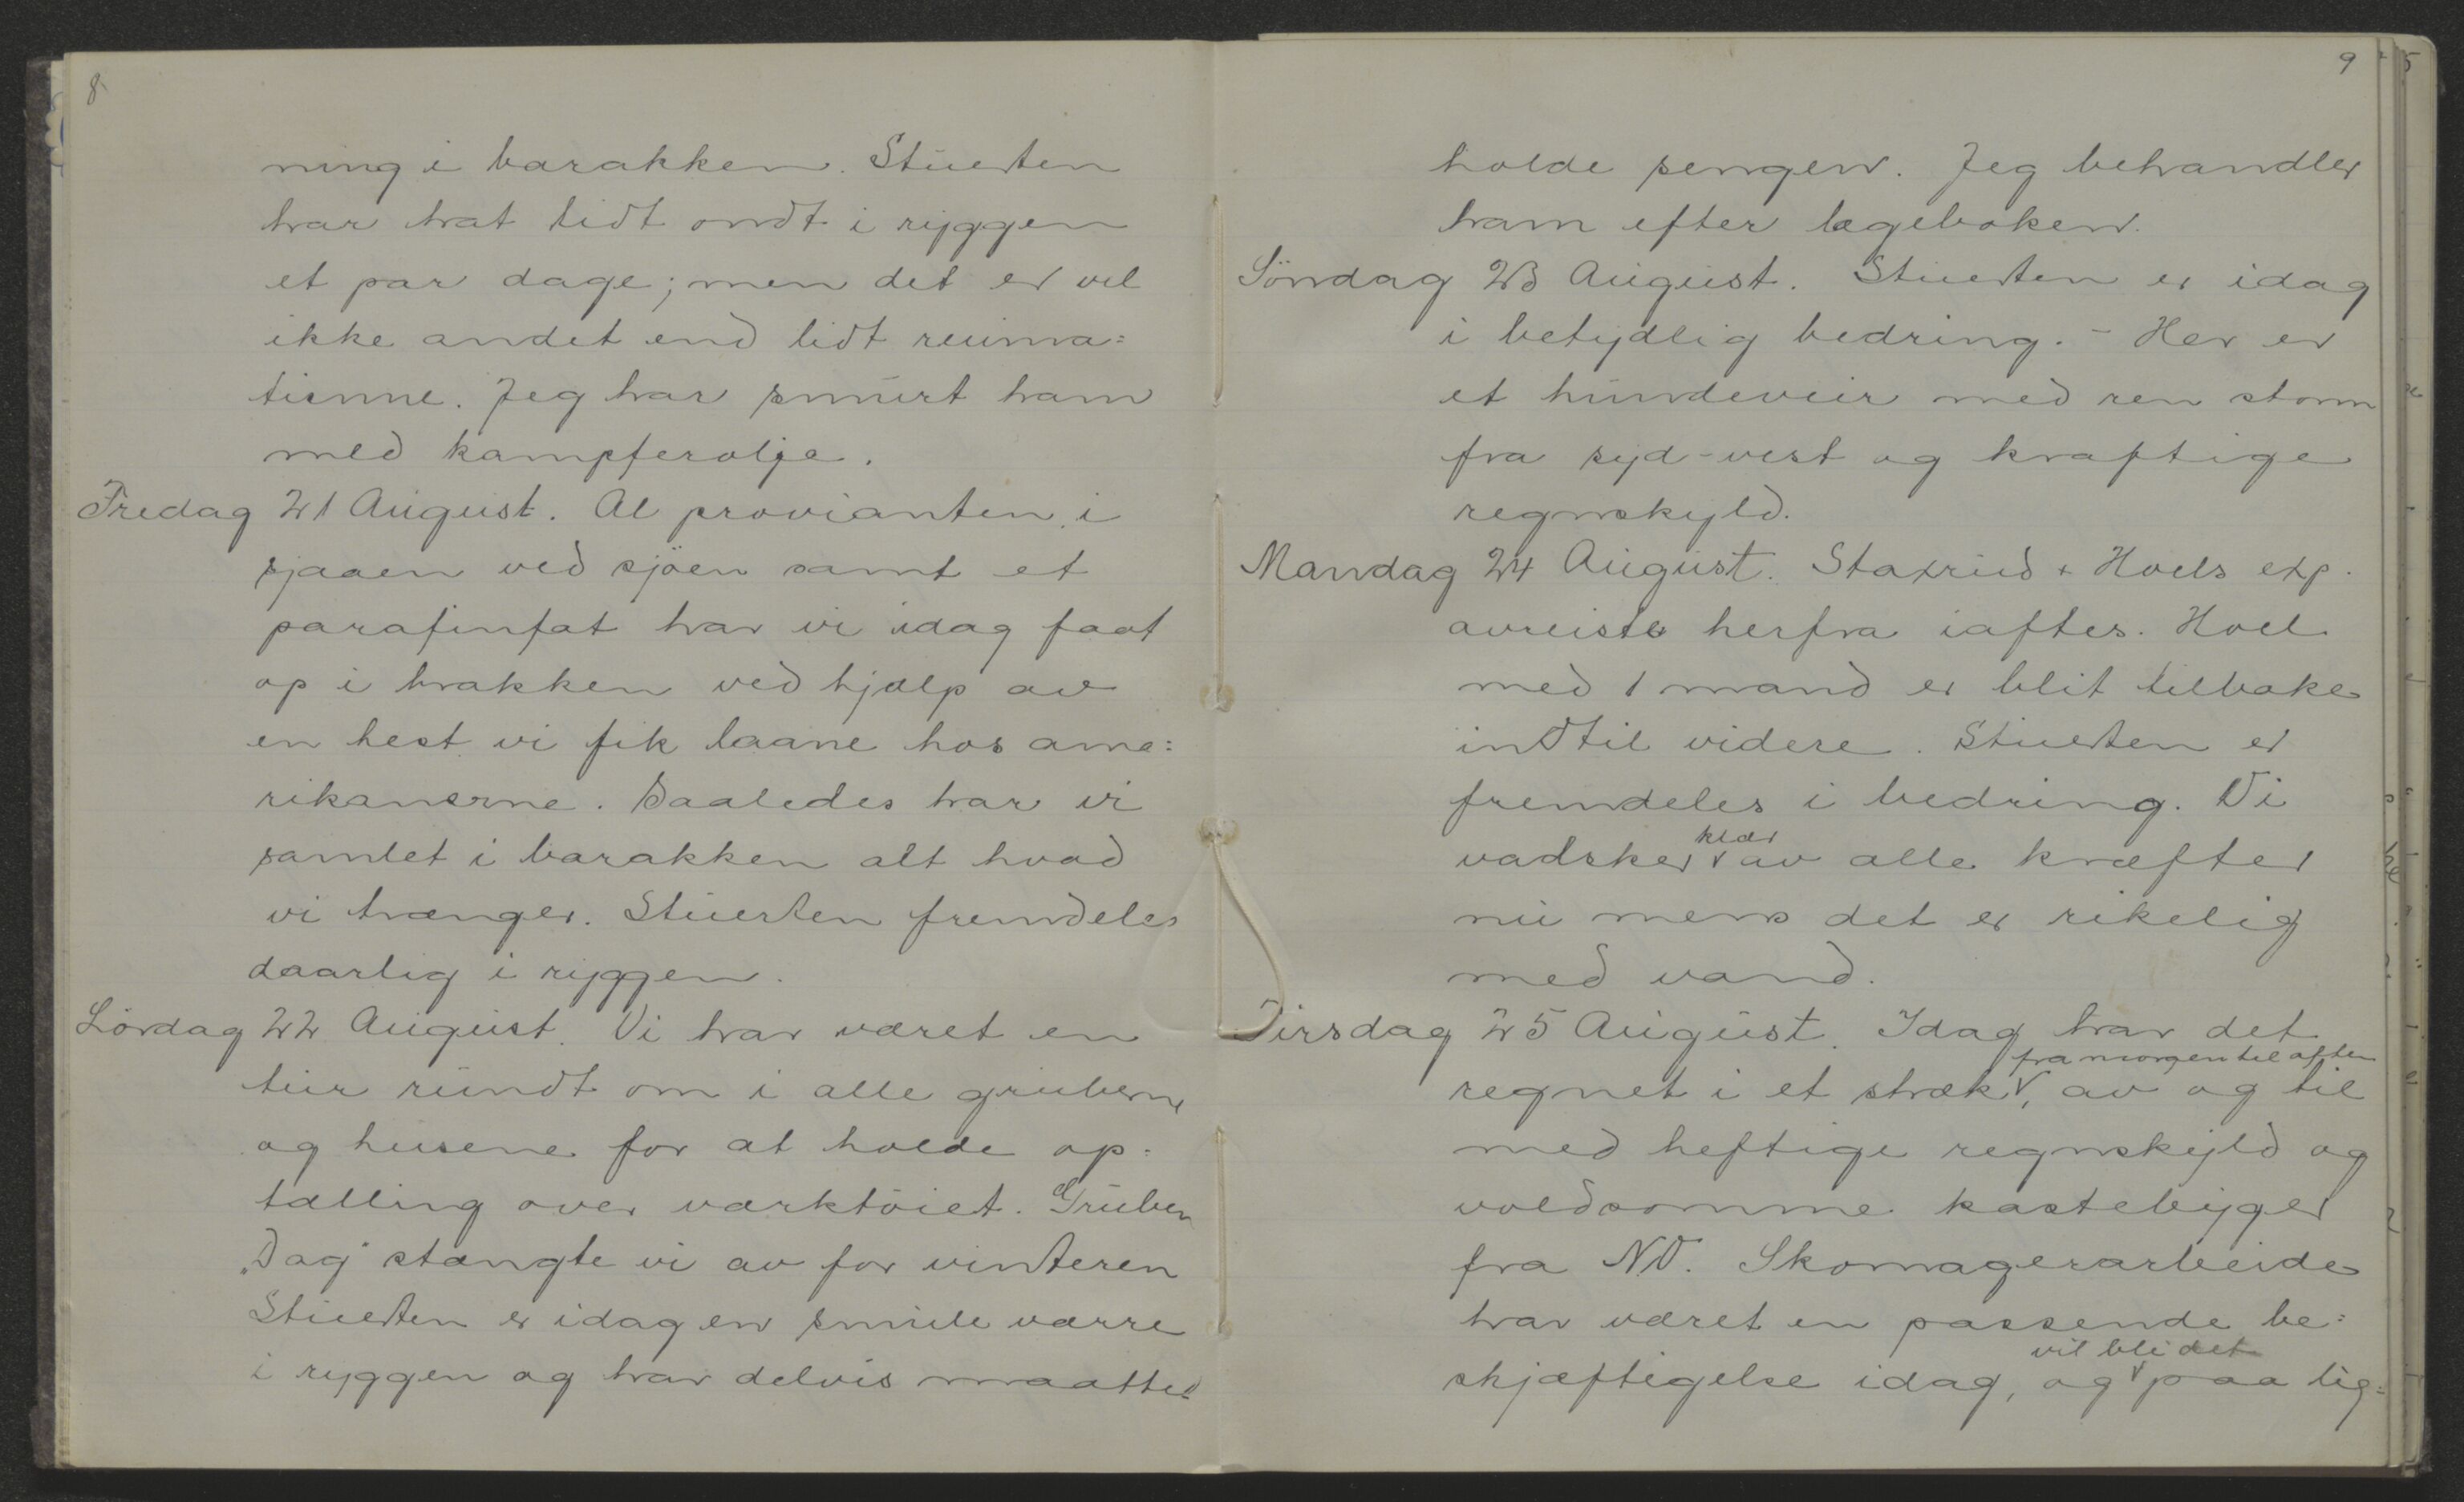 8
ning i barakken. Stuerten
har hat lidt ondt i ryggen
et par dage; men det er vel
ikke andet end lidt reuma=
tisme. Jeg har smurt ham
med kampferolje.
Fredag 21 August. Al provianten i
sjaaen ved sjöen samt et
parafinfat har vi idag faat
op i brakken ved hjælp av
en hest vi fik laane hos ame=
rikanerne. Saaledes har vi
samlet i barakken alt hvad
vi trænger. Stuerten fremdeles
daarlig i ryggen.
Lördag 22 August. Vi har været en
tur rundt om i alle gruberne
og husene for at holde op=
tælling over værktöiet. Gruben
„Dag" stængte vi av for vinteren
Stuerten er idag en smule værre
i ryggen og har delvis maattet
9
holde sengen. Jeg behandler
ham efter lægeboken.
Söndag 23 August. Stuerten er idag
i betydlig bedring. - Her er
et hundeveir med ren storm
fra syd-vest og kraftige
regnskyld.
Mandag 24 August. Staxrud + Hoels exp.
avreiste herfra iaftes. Hoel
med 1 mand er blit tilbake
indtil videre. Stuerten er
fremdeles i bedring. Vi
klær
vadsker v av alle kræfter
nu mens det er rikelig
med vand.
Tirsdag 25 August. Idag har det
fra morgen til aften
regnet i et stræk v, av og til
med heftige regnskyld og
voldsomme kastebyger
fra NV. Skomagerarbeide
har været en passende be=
vil bli det
skjæftigelse idag, og v paa lig=